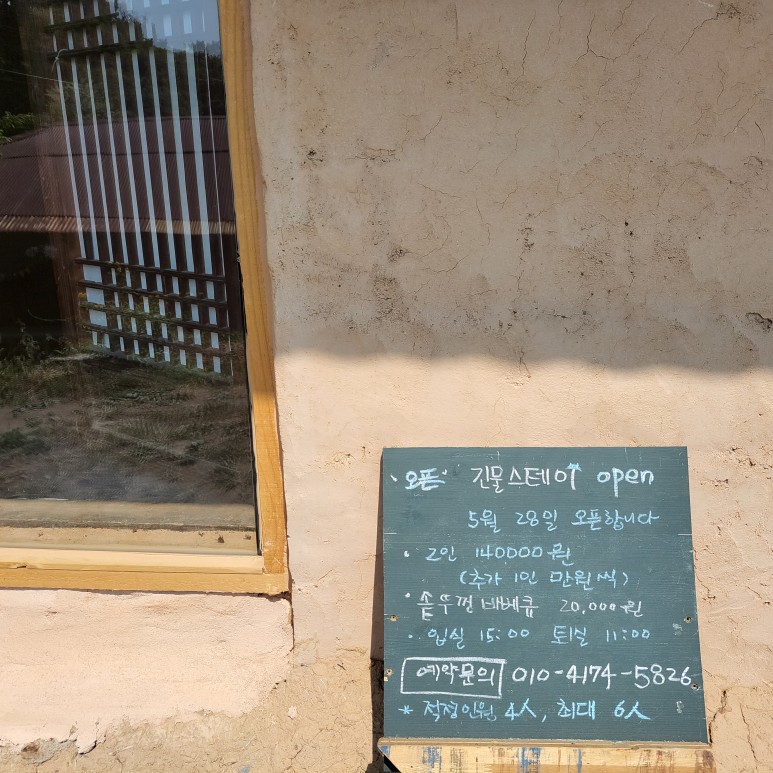 오픈 긴물스테이 open
5월 28일 오픈합니다
· 2인 140,000원
(추가 1인 만원씩)
· 솥뚜껑 바베큐 20,000원
· 입실 15:00 퇴실 11:00
예약문의 010-4174-5826
* 적정인원 4人, 최대 6人